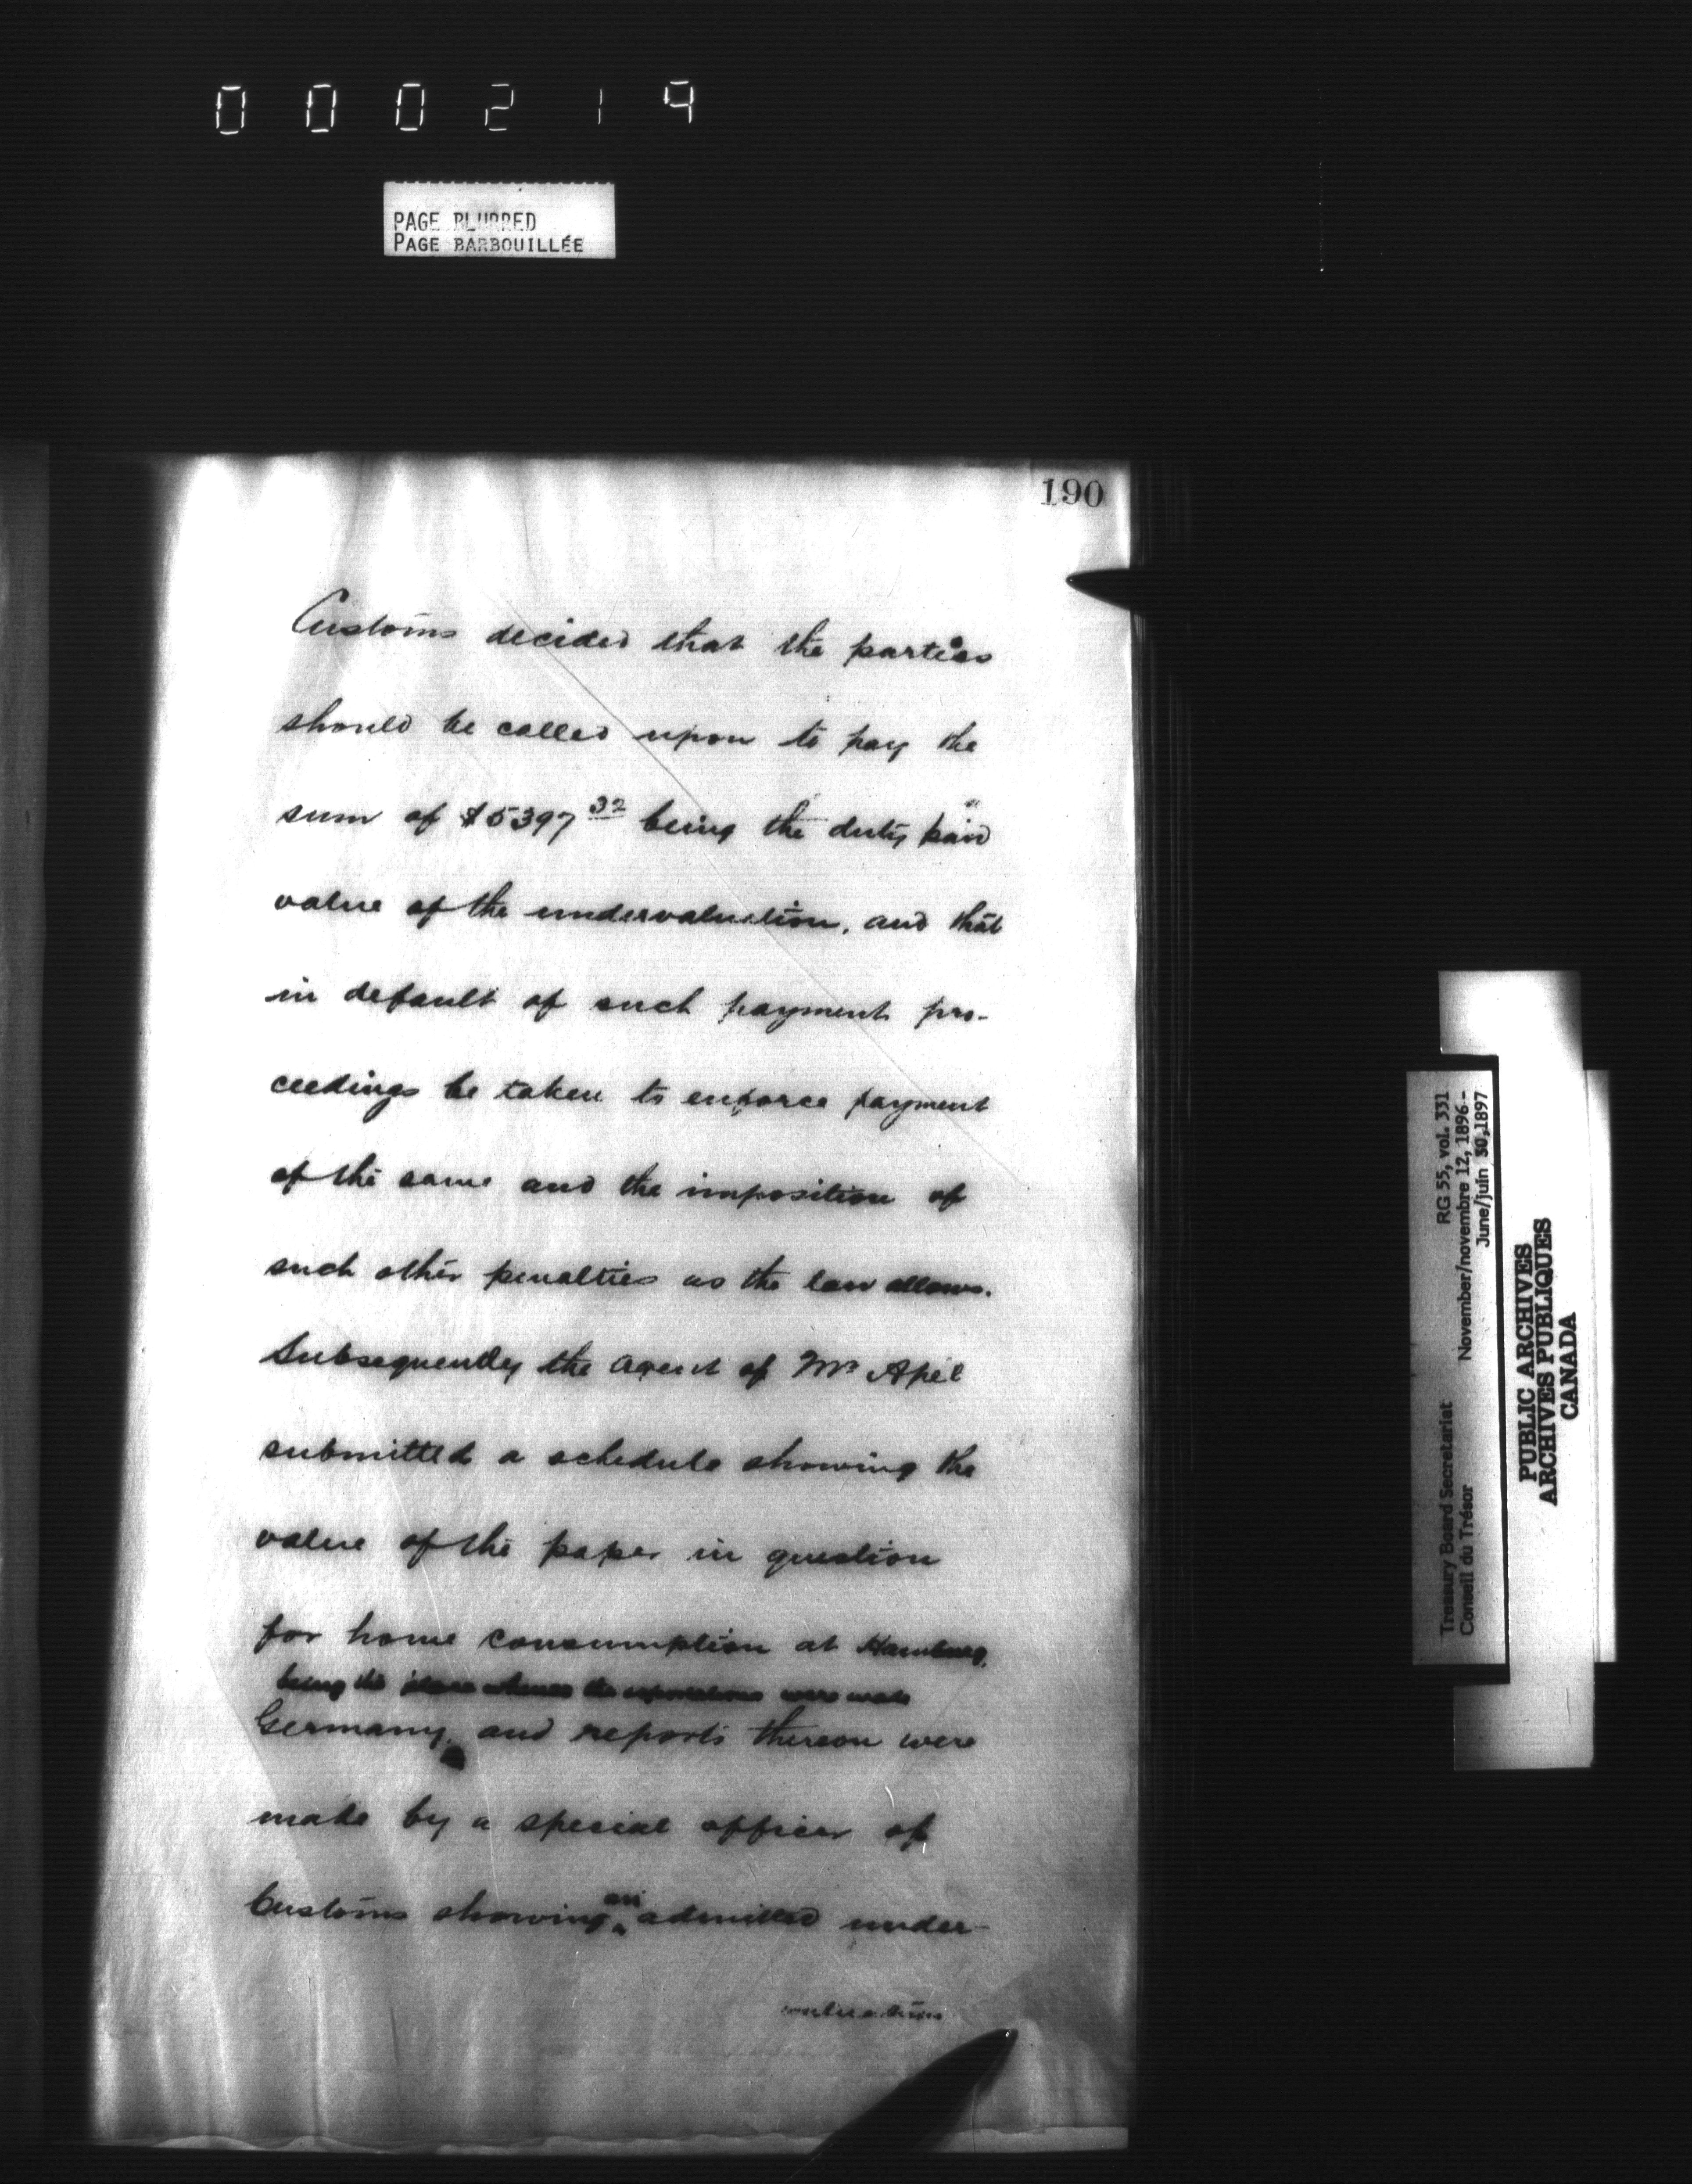 000219
PAGE BLURRED
PAGE BARBOUILLÉE
190
Customs decided that the parties
should be called upon to pay the
sum of $5397 32 being the duty paid
value of the undervaluation, and that
in default of such payment pro-
ceedings be taken to enforce payment
of the same and the imposition of
such other penalties as the law allows.
Subsequently the agent of Mr Apel
submitted a schedule showing the
value of the paper in question
for home consumption at Hamburg,
being the place whence the exportations were made
Germany, and reports thereon were
made by a special officer of
Customs showing an admitted under-
Treasury Board Secretariat RG 55, vol. 331
Conseil du Trésor November/novembre 12, 1896 -
June/juin 30, 1897
PUBLIC ARCHIVES
ARCHIVES PUBLIQUES
CANADA